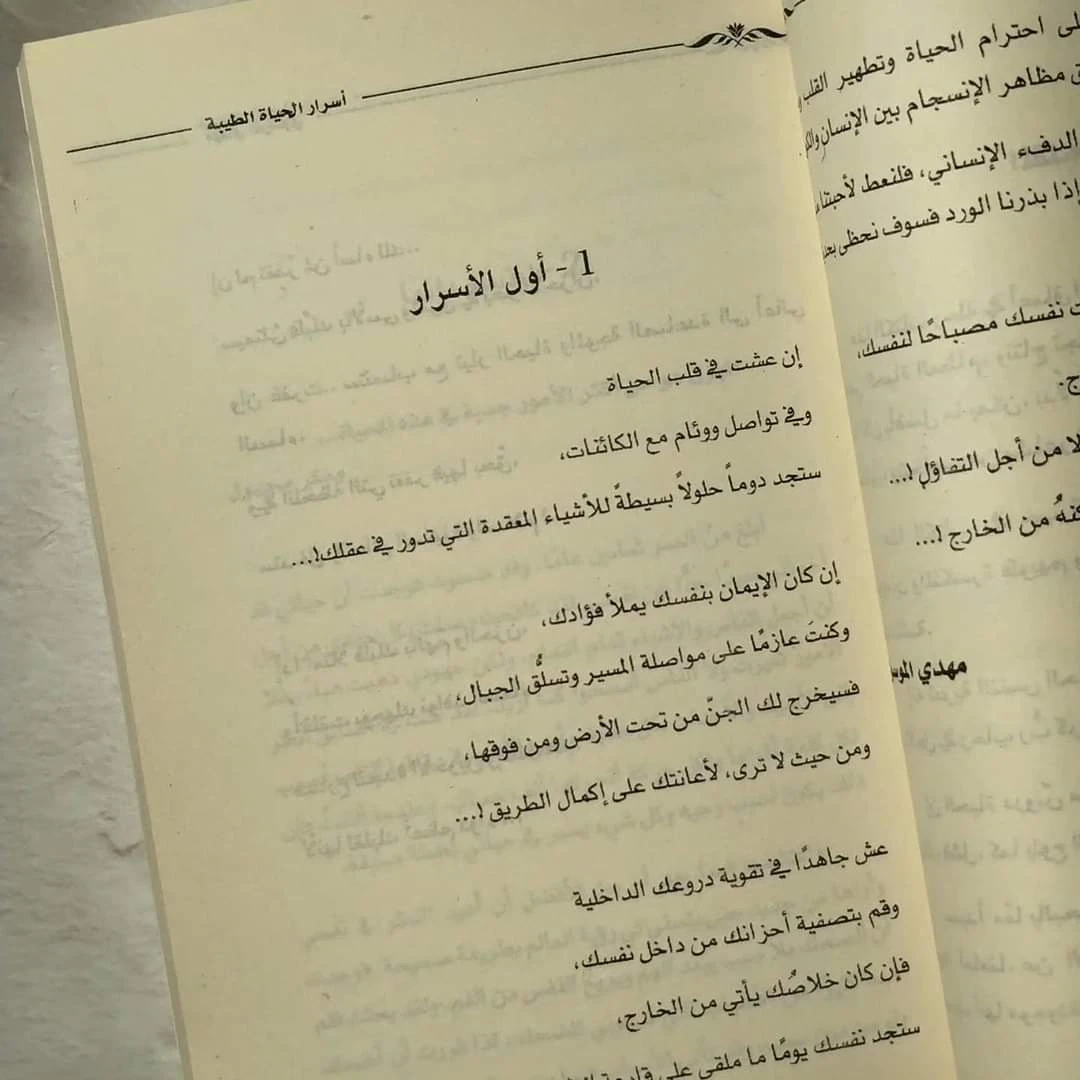 لى احترام الحياة وتطهير القلب
ق مظاهر الإنسجام بين الإنسان
الدفء الإنساني، فلنعط لأحبتنا
إذا بذرنا الورد فسوف نحظى
ت نفسك مصباحًا لنفسك،
ج.
لا من أجل التفاؤل !...
من الخارج !...
مهدي
أسرار الحياة الطيبة
1 - أول الأسرار
إن عشت في قلب الحياة
وفي تواصل ووئام مع الكائنات،
ستجد دوماً حلولاً بسيطةً للأشياء المعقدة التي تدور في عقلك!...
إن كان الإيمان بنفسك يملأ فؤادك،
وكنتَ عازمًا على مواصلة المسير وتسلُّق الجبال،
فسيخرج لك الجنّ من تحت الأرض ومن فوقها،
ومن حيث لا ترى، لأعانتك على إكمال الطريق !...
عش جاهدًا في تقوية دروعك الداخلية
وقم بتصفية أحزانك من داخل نفسك،
فإن كان خلاصُك يأتي من الخارج،
ستجد نفسك يومًا ما ملقى على